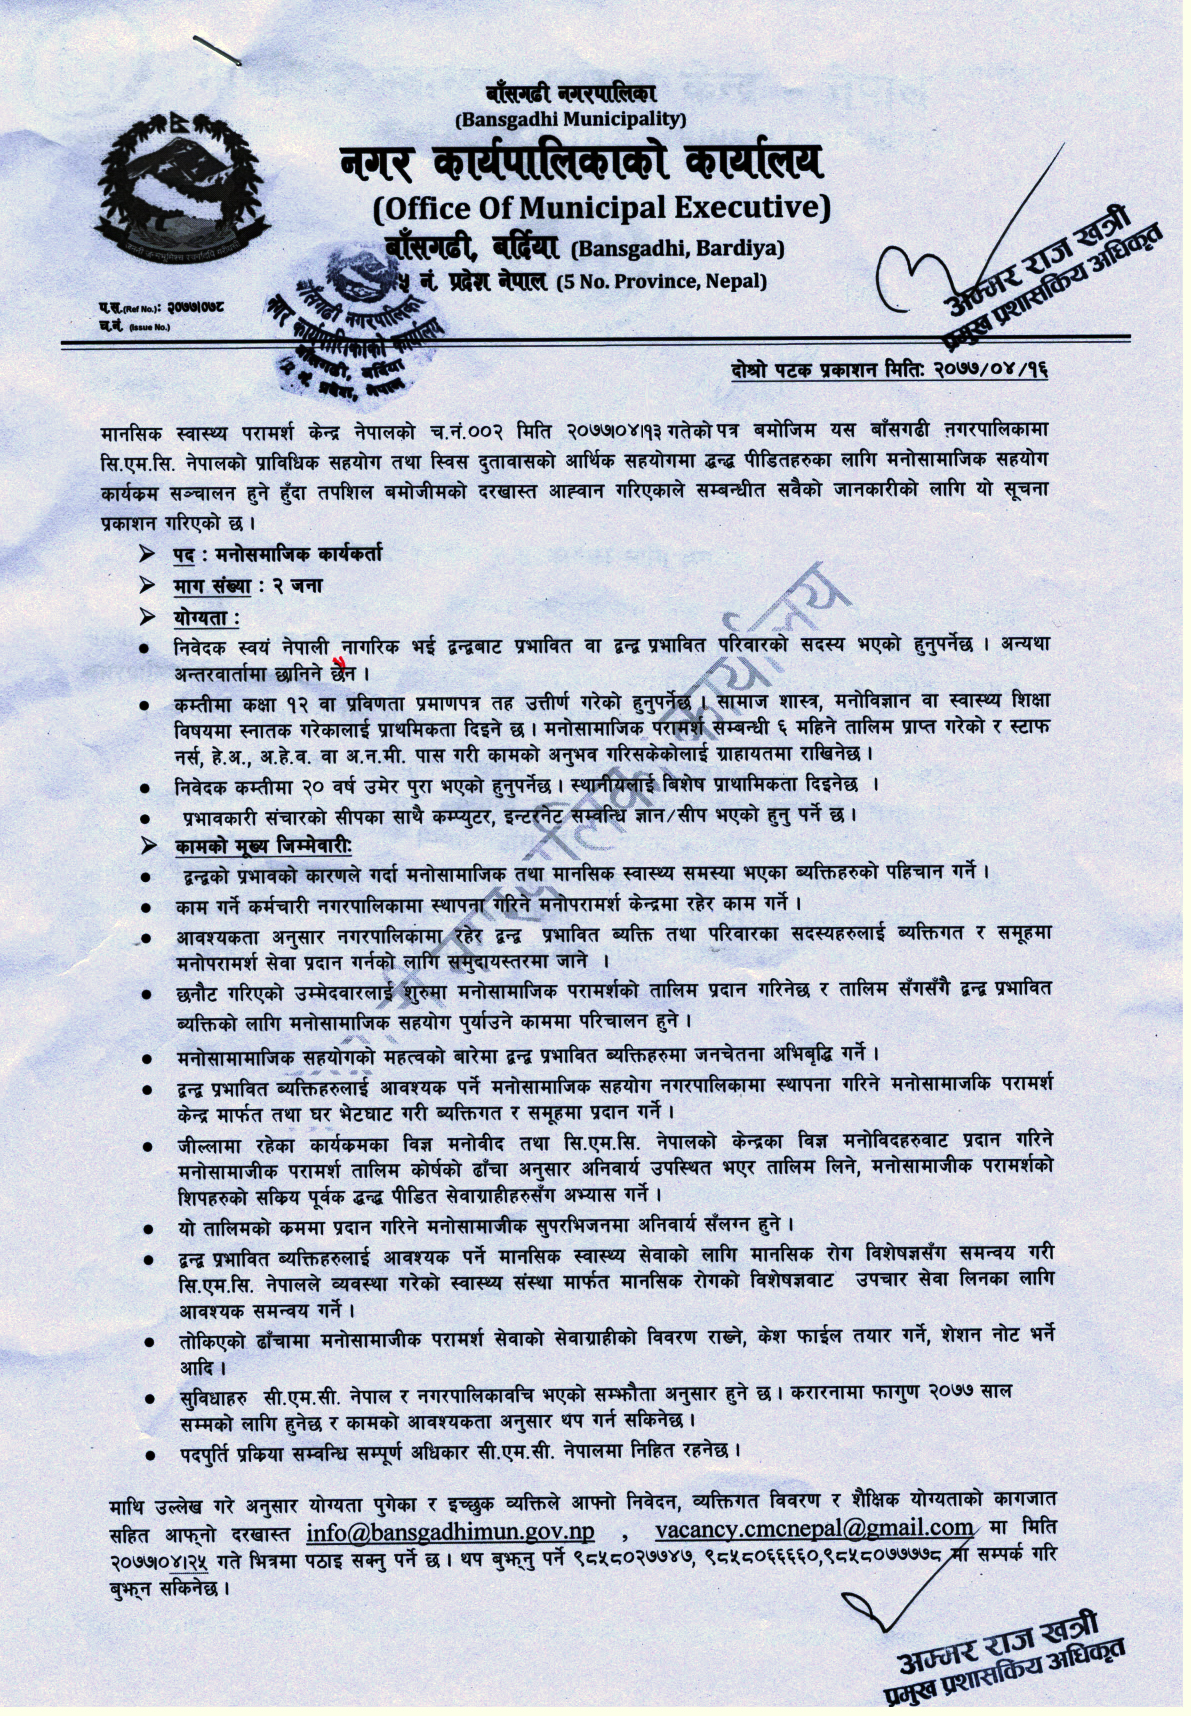 बाँसगढी नगरपालिका
(Bansgadhi Municipality)
नगर कार्यपालिकाको कार्यालय
(Office Of Municipal Executive)
बाँसगढी, बर्दिया (Bansgadhi, Bardiya)
५ नं. प्रदेश नेपाल (5 No. Province, Nepal)
बाँसगढी नगरपालिका
नगर कार्यपालिकाको कार्यालय
बाँसगढी, बर्दिया
५ नं. प्रदेश, नेपाल
अम्मर राज खत्री
प्रमुख प्रशासकिय अधिकृत
प.स.(Ref No.): २०७७।०७८
च.नं. (Issue No.)
दोश्रो पटक प्रकाशन मितिः २०७७/०४/१६
मानसिक स्वास्थ्य परामर्श केन्द्र नेपालको च.नं.००२ मिति २०७७।०४।१३ गतेको पत्र बमोजिम यस बाँसगढी नगरपालिकामा
सि.एम.सि. नेपालको प्राविधिक सहयोग तथा स्विस दुतावासको आर्थिक सहयोगमा द्धन्द्ध पीडितहरुका लागि मनोसामाजिक सहयोग
कार्यक्रम सञ्चालन हुने हुँदा तपशिल बमोजीमको दरखास्त आह्वान गरिएकाले सम्बन्धीत सवैको जानकारीको लागि यो सूचना
प्रकाशन गरिएको छ ।
➢ पद : मनोसमाजिक कार्यकर्ता
➢ माग संख्या : २ जना
➢ योग्यता :
• निवेदक स्वयं नेपाली नागरिक भई द्वन्द्वबाट प्रभावित वा द्वन्द्व प्रभावित परिवारको सदस्य भएको हुनुपर्नेछ । अन्यथा
अन्तरवार्तामा छानिने छैन ।
• कम्तीमा कक्षा १२ वा प्रविणता प्रमाणपत्र तह उत्तीर्ण गरेको हुनुपर्नेछ । सामाज शास्त्र, मनोविज्ञान वा स्वास्थ्य शिक्षा
विषयमा स्नातक गरेकालाई प्राथमिकता दिइने छ । मनोसामाजिक परामर्श सम्बन्धी ६ महिने तालिम प्राप्त गरेको र स्टाफ
नर्स, हे.अ., अ.हे.व. वा अ.न.मी. पास गरी कामको अनुभव गरिसकेकोलाई ग्राहायतमा राखिनेछ ।
• निवेदक कम्तीमा २० वर्ष उमेर पुरा भएको हुनुपर्नेछ । स्थानीयलाई बिशेष प्राथामिकता दिइनेछ ।
• प्रभावकारी संचारको सीपका साथै कम्प्युटर, इन्टरनेट सम्वन्धि ज्ञान/सीप भएको हुनु पर्ने छ ।
➢ कामको मूख्य जिम्मेवारी:
• द्वन्द्वको प्रभावको कारणले गर्दा मनोसामाजिक तथा मानसिक स्वास्थ्य समस्या भएका ब्यक्तिहरुको पहिचान गर्ने ।
• काम गर्ने कर्मचारी नगरपालिकामा स्थापना गरिने मनोपरामर्श केन्द्रमा रहेर काम गर्ने ।
• आवश्यकता अनुसार नगरपालिकामा रहेर द्वन्द्व प्रभावित ब्यक्ति तथा परिवारका सदस्यहरुलाई ब्यक्तिगत र समूहमा
मनोपरामर्श सेवा प्रदान गर्नको लागि समुदायस्तरमा जाने ।
• छनौट गरिएको उम्मेदवारलाई शुरुमा मनोसामाजिक परामर्शको तालिम प्रदान गरिनेछ र तालिम सँगसँगै द्वन्द्व प्रभावित
ब्यक्तिको लागि मनोसामाजिक सहयोग पुर्याउने काममा परिचालन हुने ।
• मनोसामामाजिक सहयोगको महत्वको बारेमा द्वन्द्व प्रभावित ब्यक्तिहरुमा जनचेतना अभिबृद्धि गर्ने ।
• द्वन्द्व प्रभावित ब्यक्तिहरुलाई आवश्यक पर्ने मनोसामाजिक सहयोग नगरपालिकामा स्थापना गरिने मनोसामाजकि परामर्श
केन्द्र मार्फत तथा घर भेटघाट गरी ब्यक्तिगत र समूहमा प्रदान गर्ने ।
• जील्लामा रहेका कार्यक्रमका विज्ञ मनोवीद तथा सि.एम.सि. नेपालको केन्द्रका विज्ञ मनोविदहरुवाट प्रदान गरिने
मनोसामाजीक परामर्श तालिम कोर्षको ढाँचा अनुसार अनिवार्य उपस्थित भएर तालिम लिने, मनोसामाजीक परामर्शको
शिपहरुको सक्रिय पूर्वक द्धन्द्ध पीडित सेवाग्राहीहरुसँग अभ्यास गर्ने ।
• यो तालिमको क्रममा प्रदान गरिने मनोसामाजीक सुपरभिजनमा अनिवार्य सँलग्न हुने ।
• द्वन्द्व प्रभावित ब्यक्तिहरुलाई आवश्यक पर्ने मानसिक स्वास्थ्य सेवाको लागि मानसिक रोग विशेषज्ञसँग समन्वय गरी
सि.एम.सि. नेपालले व्यवस्था गरेको स्वास्थ्य संस्था मार्फत मानसिक रोगको विशेषज्ञवाट उपचार सेवा लिनका लागि
आवश्यक समन्वय गर्ने ।
• तोकिएको ढाँचामा मनोसामाजीक परामर्श सेवाको सेवाग्राहीको विवरण राख्ने, केश फाईल तयार गर्ने, शेशन नोट भर्ने
आदि ।
• सुविधाहरु सी.एम.सी. नेपाल र नगरपालिकावचि भएको सम्झौता अनुसार हुने छ । करारनामा फागुण २०७७ साल
सम्मको लागि हुनेछ र कामको आवश्यकता अनुसार थप गर्न सकिनेछ ।
• पदपुर्ति प्रक्रिया सम्वन्धि सम्पूर्ण अधिकार सी.एम.सी. नेपालमा निहित रहनेछ ।
माथि उल्लेख गरे अनुसार योग्यता पुगेका र इच्छुक व्यक्तिले आफ्नो निवेदन, व्यक्तिगत विवरण र शैक्षिक योग्यताको कागजात
सहित आफ्नो दरखास्त info@bansgadhimun.gov.np , vacancy.cmcnepal@gmail.com मा मिति
२०७७।०४।२५ गते भित्रमा पठाइ सक्नु पर्ने छ । थप बुझ्नु पर्ने ९८५८०२७७४७, ९८५८०६६६६०,९८५८०७७७७८ मा सम्पर्क गरि
बुझ्न सकिनेछ ।
अम्मर राज खत्री
प्रमुख प्रशासकिय अधिकृत